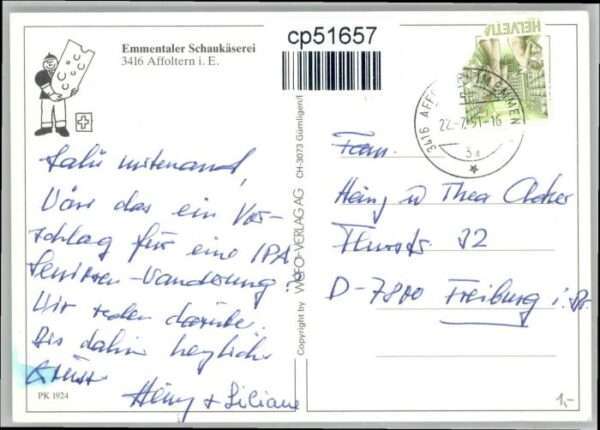 Emmentaler Schaukäserei
3416 Affoltern i. E.
cp51657
HELVETIA
3416 AFFOLTERN IM EMMEN
22.-7.91-16
Salü mitenand,
Wäre das ein Vor-
schlag für eine IPA
Senioren-Wanderung?
Wir reden darüber.
Bis dahin herzliche
Grüsse
Heinz + Liliane
PK 1924
Copyright by WIFO-VERLAG AG CH-3073 Gümligen/I
Fam.
Heinz u Thea
32
D-7800 Freiburg i. Br.
1,-